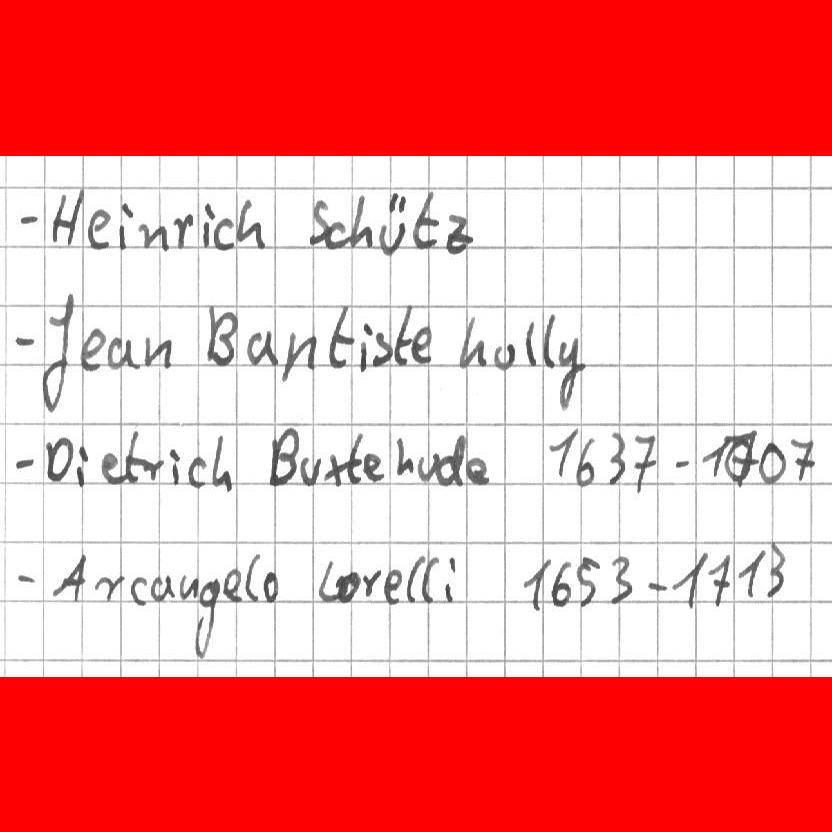 - Heinrich Schütz
- Jean Baptiste holly
- Dietrich Buxtehude 1637 - 1707
- Arcangelo Corelli 1653 - 1713